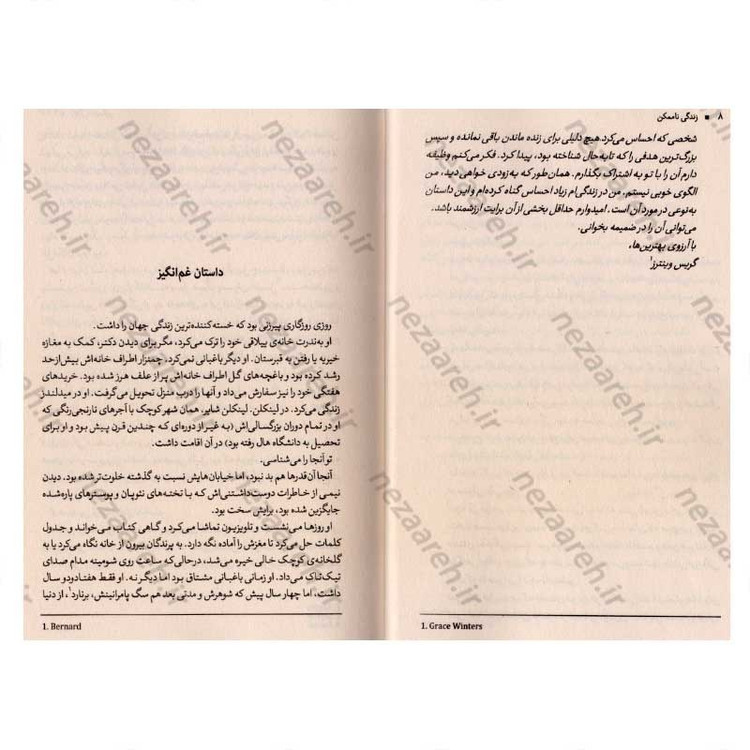 ۸ ■ زندگی ناممکن
شخصی که احساس می‌کرد هیچ دلیلی برای زنده ماندن باقی نمانده و سپس
بزرگ‌ترین هدفی را که تابه‌حال شناخته بود، پیدا کرد. فکر می‌کنم وظیفه
دارم آن را با تو به اشتراک بگذارم. همان‌طور که به‌زودی خواهی دید، من
الگوی خوبی نیستم. من در زندگی‌ام زیاد احساس گناه کرده‌ام و این داستان
به‌نوعی در مورد آن است. امیدوارم حداقل بخشی از آن برایت ارزشمند باشد.
می‌توانی آن را در ضمیمه بخوانی.
با آرزوی بهترین‌ها،
گریس وینترز۱
1. Grace Winters
داستان غم‌انگیز
روزی روزگاری پیرزنی بود که خسته‌کننده‌ترین زندگی جهان را داشت.
او به‌ندرت خانه‌ی ییلاقی خود را ترک می‌کرد، مگر برای دیدن دکتر، کمک به مغازه
خیریه یا رفتن به قبرستان. او دیگر باغبانی نمی‌کرد، چمنزار اطراف خانه‌اش بیش‌از‌حد
رشد کرده بود و باغچه‌های گل اطراف خانه‌اش پر از علف هرز شده بود. خریدهای
هفتگی خود را نیز سفارش می‌داد و آنها را درب منزل تحویل می‌گرفت. او در میدلندز
زندگی می‌کرد. در لینکلن. لینکلن شایر. همان شهر کوچک با آجرهای نارنجی‌رنگی که
او در تمام دوران بزرگسالی‌اش (به غیر از دوره‌ای که چندین قرن پیش بود و او برای
تحصیل به دانشگاه هال رفته بود) در آن اقامت داشت.
تو آنجا را می‌شناسی.
آنجا آن‌قدرها هم بد نبود، اما خیابان‌هایش نسبت به گذشته خلوت‌تر شده بود. دیدن
نیمی از خاطرات دوست‌داشتنی‌اش که با تخته‌های نئوپان و پوسترهای پاره‌شده
جایگزین شده بود، برایش سخت بود.
او روزها می‌نشست و تلویزیون تماشا می‌کرد و گاهی کتاب می‌خواند و جدول
کلمات حل می‌کرد تا مغزش را آماده نگه دارد. به پرندگان بیرون از خانه نگاه می‌کرد یا به
گلخانه‌ی کوچک خالی خیره می‌شد، درحالی‌که ساعت روی شومینه مدام صدای
تیک‌تاک می‌داد. او زمانی باغبانی مشتاق بود اما دیگر نه. او فقط هفتادودو سال
داشت، اما چهار سال پیش که شوهرش و مدتی بعد هم سگ پامرانینش، برنارد۱، از دنیا
1. Bernard
nezaareh.ir